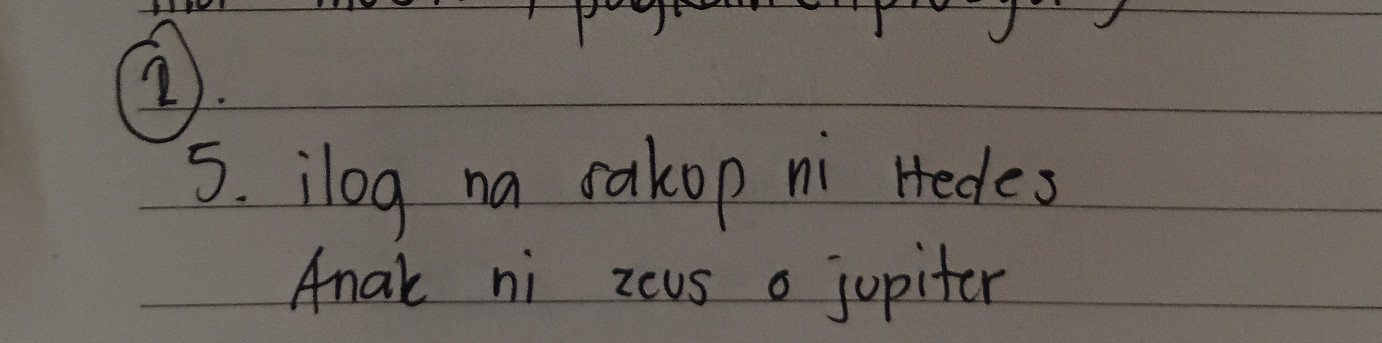 1.
5. ilog na sakop ni Hedes
Anak ni zeus o jupiter